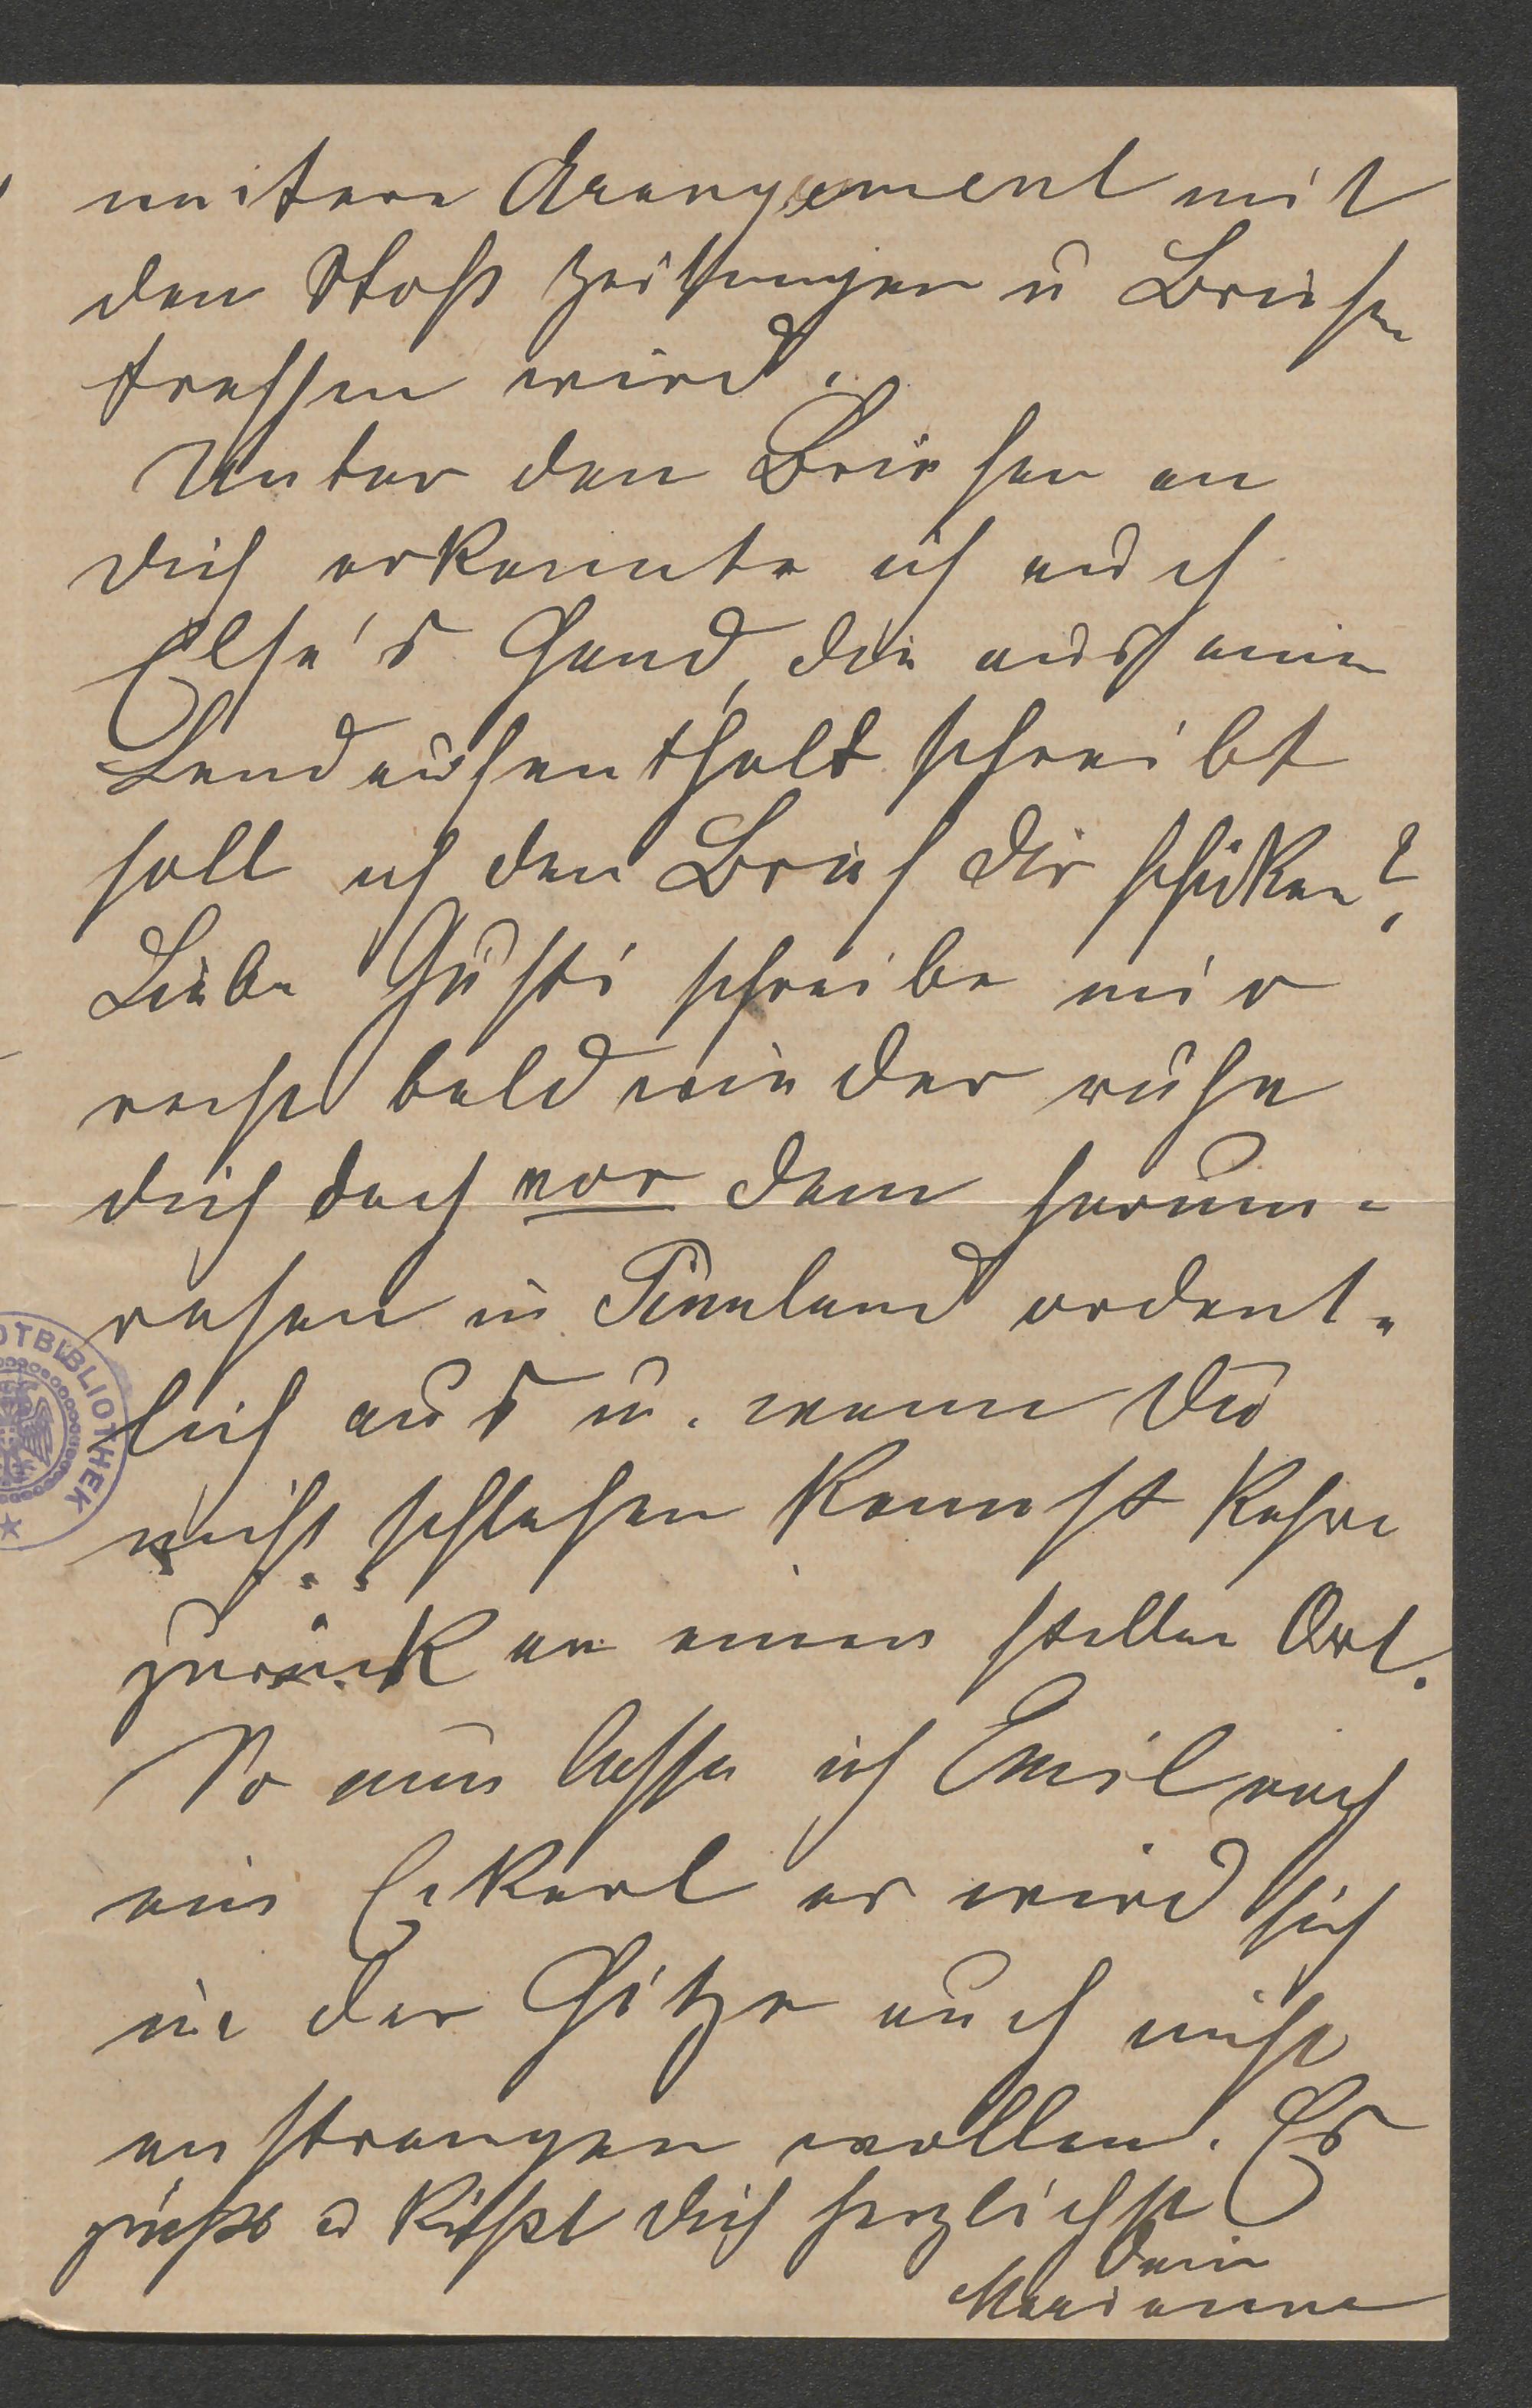 weitere Arangement mit
den Stoß Zeitungen u Briefen
treffen wird.
Unter den Briefen an
Dich erkannte ich auch
Else's Hand, die aus ihrem
Landaufenthalt schreibt
soll ich den Brief Dir schicken?
Liebe Gusti schreibe mir
recht bald wieder ruhe
Dich doch vor dem herum-
rasen in Finnland ordent-
lich aus u. wenn Du
nicht schlafen kannst kehre
zurück an einen stillen Ort.
So nun lasse ich Emil noch
ein Eckerl er wird sich
in der Hitze auch nicht
anstrengen wollen. Es
grüßt u küßt Dich herzlichst
Deine
Marianne
OTBIBLIOTHEK